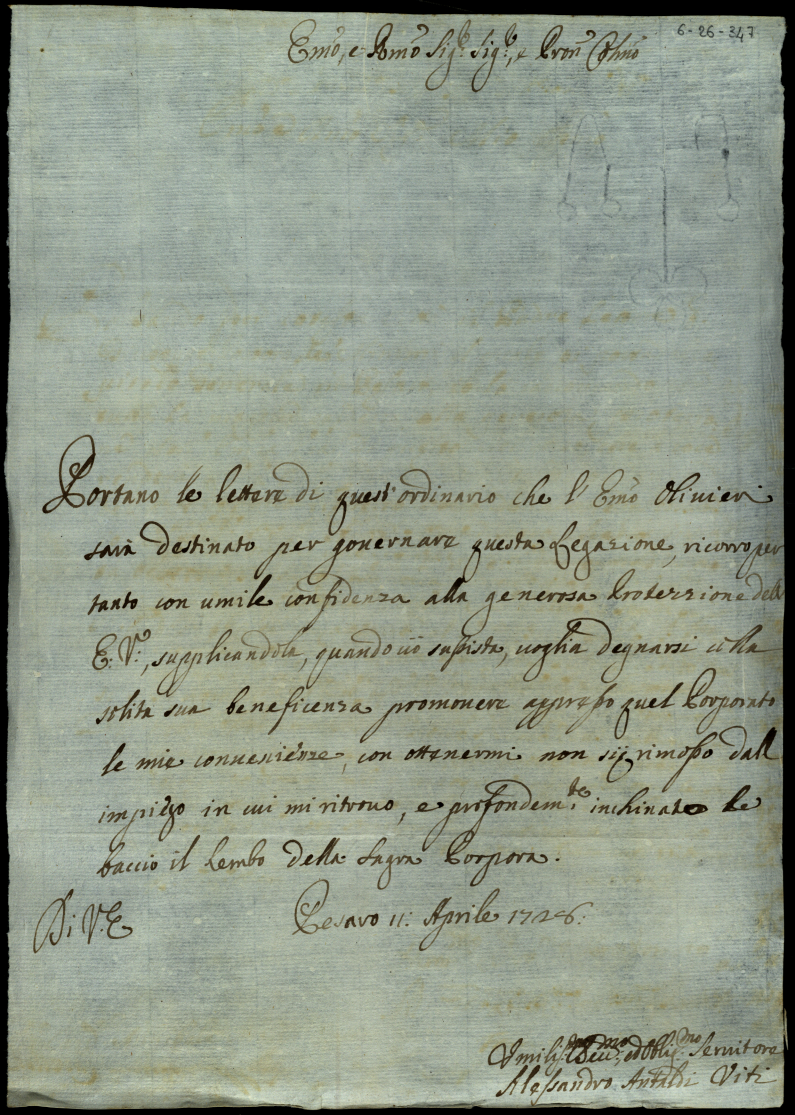 6-26-347
Emo, e Rmo Sig.r Sig.r, e Pron Colmo
Portano le lettere di quest'ordinario che l'Emo Olivieri
sarà destinato per governare questa Legazione, ricorro per
tanto con umile confidenza alla generosa Protezzione dell
E: V:, supplicandola, quando ciò sussista, voglia degnarsi colla
solita sua beneficenza promovere appresso quel Porporato
le mie convenienze, con ottenermi non sij rimosso dall
impiego in cui mi ritrovo, e profondem.te inchinato le
baccio il Lembo della Sagra Porpora.
Di V: E Pesaro 11: Aprile 1726:
Umiliss.mo ed Oblig.mo Servitore
Alessandro Antaldi Viti